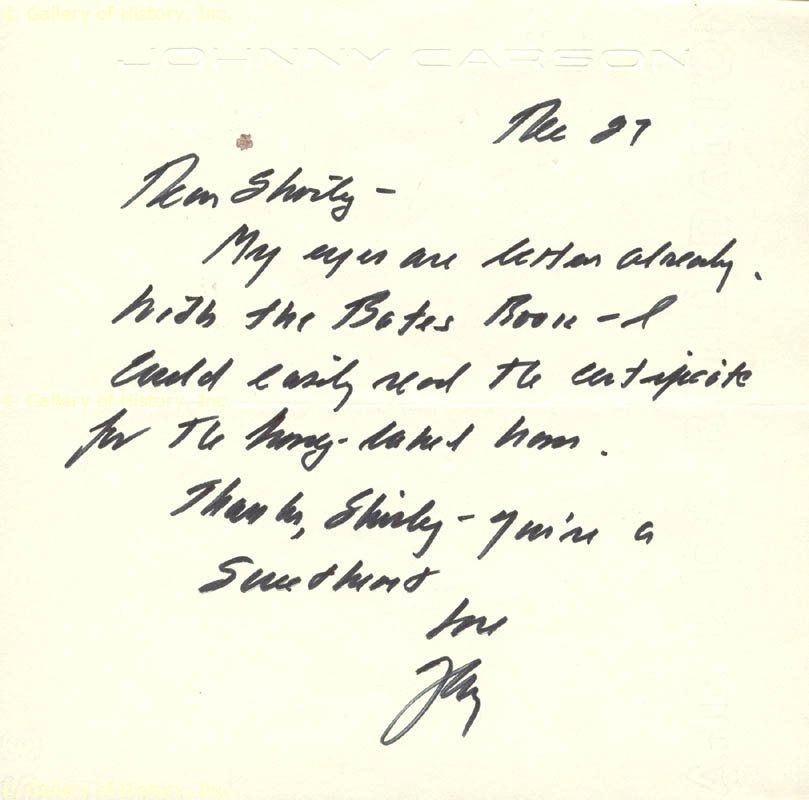 © Gallery of History, Inc.
JOHNNY CARSON
Dec 27
Dear Shirley -
My eyes are better already.
With the Bates Book - I
could easily read the certificate
for the honey-baked ham.
Thanks, Shirley - you're a
Sweetheart
Love
© Gallery of History, Inc.
© Gallery of History, Inc.